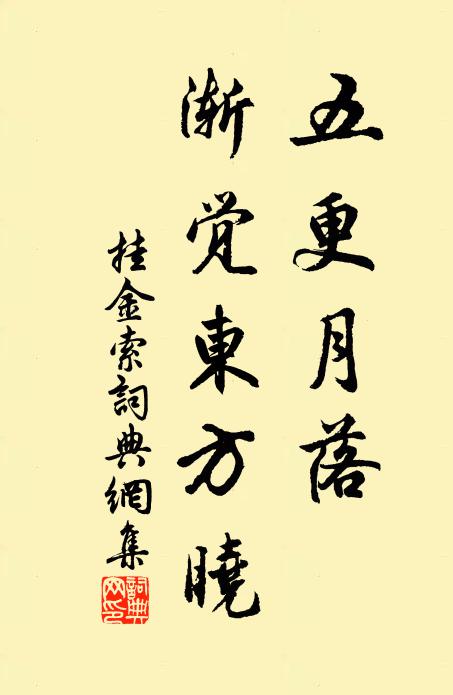 五更月落
渐觉東方曉
挂金索詞典網集
詞典網印